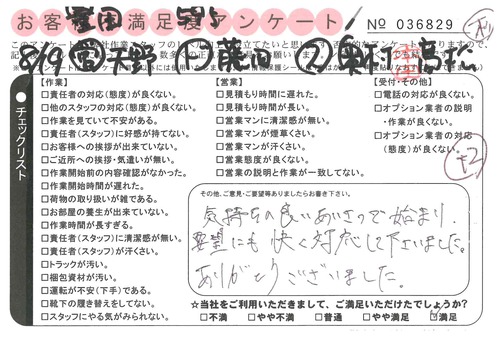 お客様満足度アンケート
No 036829
8/19
天野
藤田
②
高松
チェックリスト
【作業】
□責任者の対応(態度)が良くない。
□他のスタッフの対応(態度)が良くない。
□作業を見ていて不安がある。
□責任者(スタッフ)に好感が持てない。
□お客様への挨拶が出来ていない。
□ご近所への挨拶・気遣いが無い。
□作業開始前の内容確認がなかった。
□作業開始時間が遅れた。
□荷物の取り扱いが雑である。
□お部屋の養生が出来ていない。
□作業時間が長すぎる。
□責任者(スタッフ)に清潔感が無い。
□責任者(スタッフ)が汗くさい。
□トラックが汚い。
□梱包資材が汚い。
□運転が不安(下手)である。
□靴下の履き替えをしてない。
□スタッフにやる気がみられない。
【営業】
□見積もり時間に遅れた。
□見積もり時間が長い。
□営業マンに清潔感が無い。
□営業マンが煙草くさい。
□営業マンが汗くさい。
□営業態度が良くない。
□営業の説明と作業が一致してない。
【受付・その他】
□電話の対応が良くない。
□オプション業者の説明
・作業が良くない。
□オプション業者の対応
(態度)が良くない。
+2
その他、ご意見・ご要望等ありましたらお書き下さい。
気持ちの良いあいさつで始まり、
要望にも快く対応して下さいました。
ありがとうございました。
☆当社をご利用いただきまして、ご満足いただけたでしょうか?
□不満 □やや不満 □普通 □やや満足 ☑満足